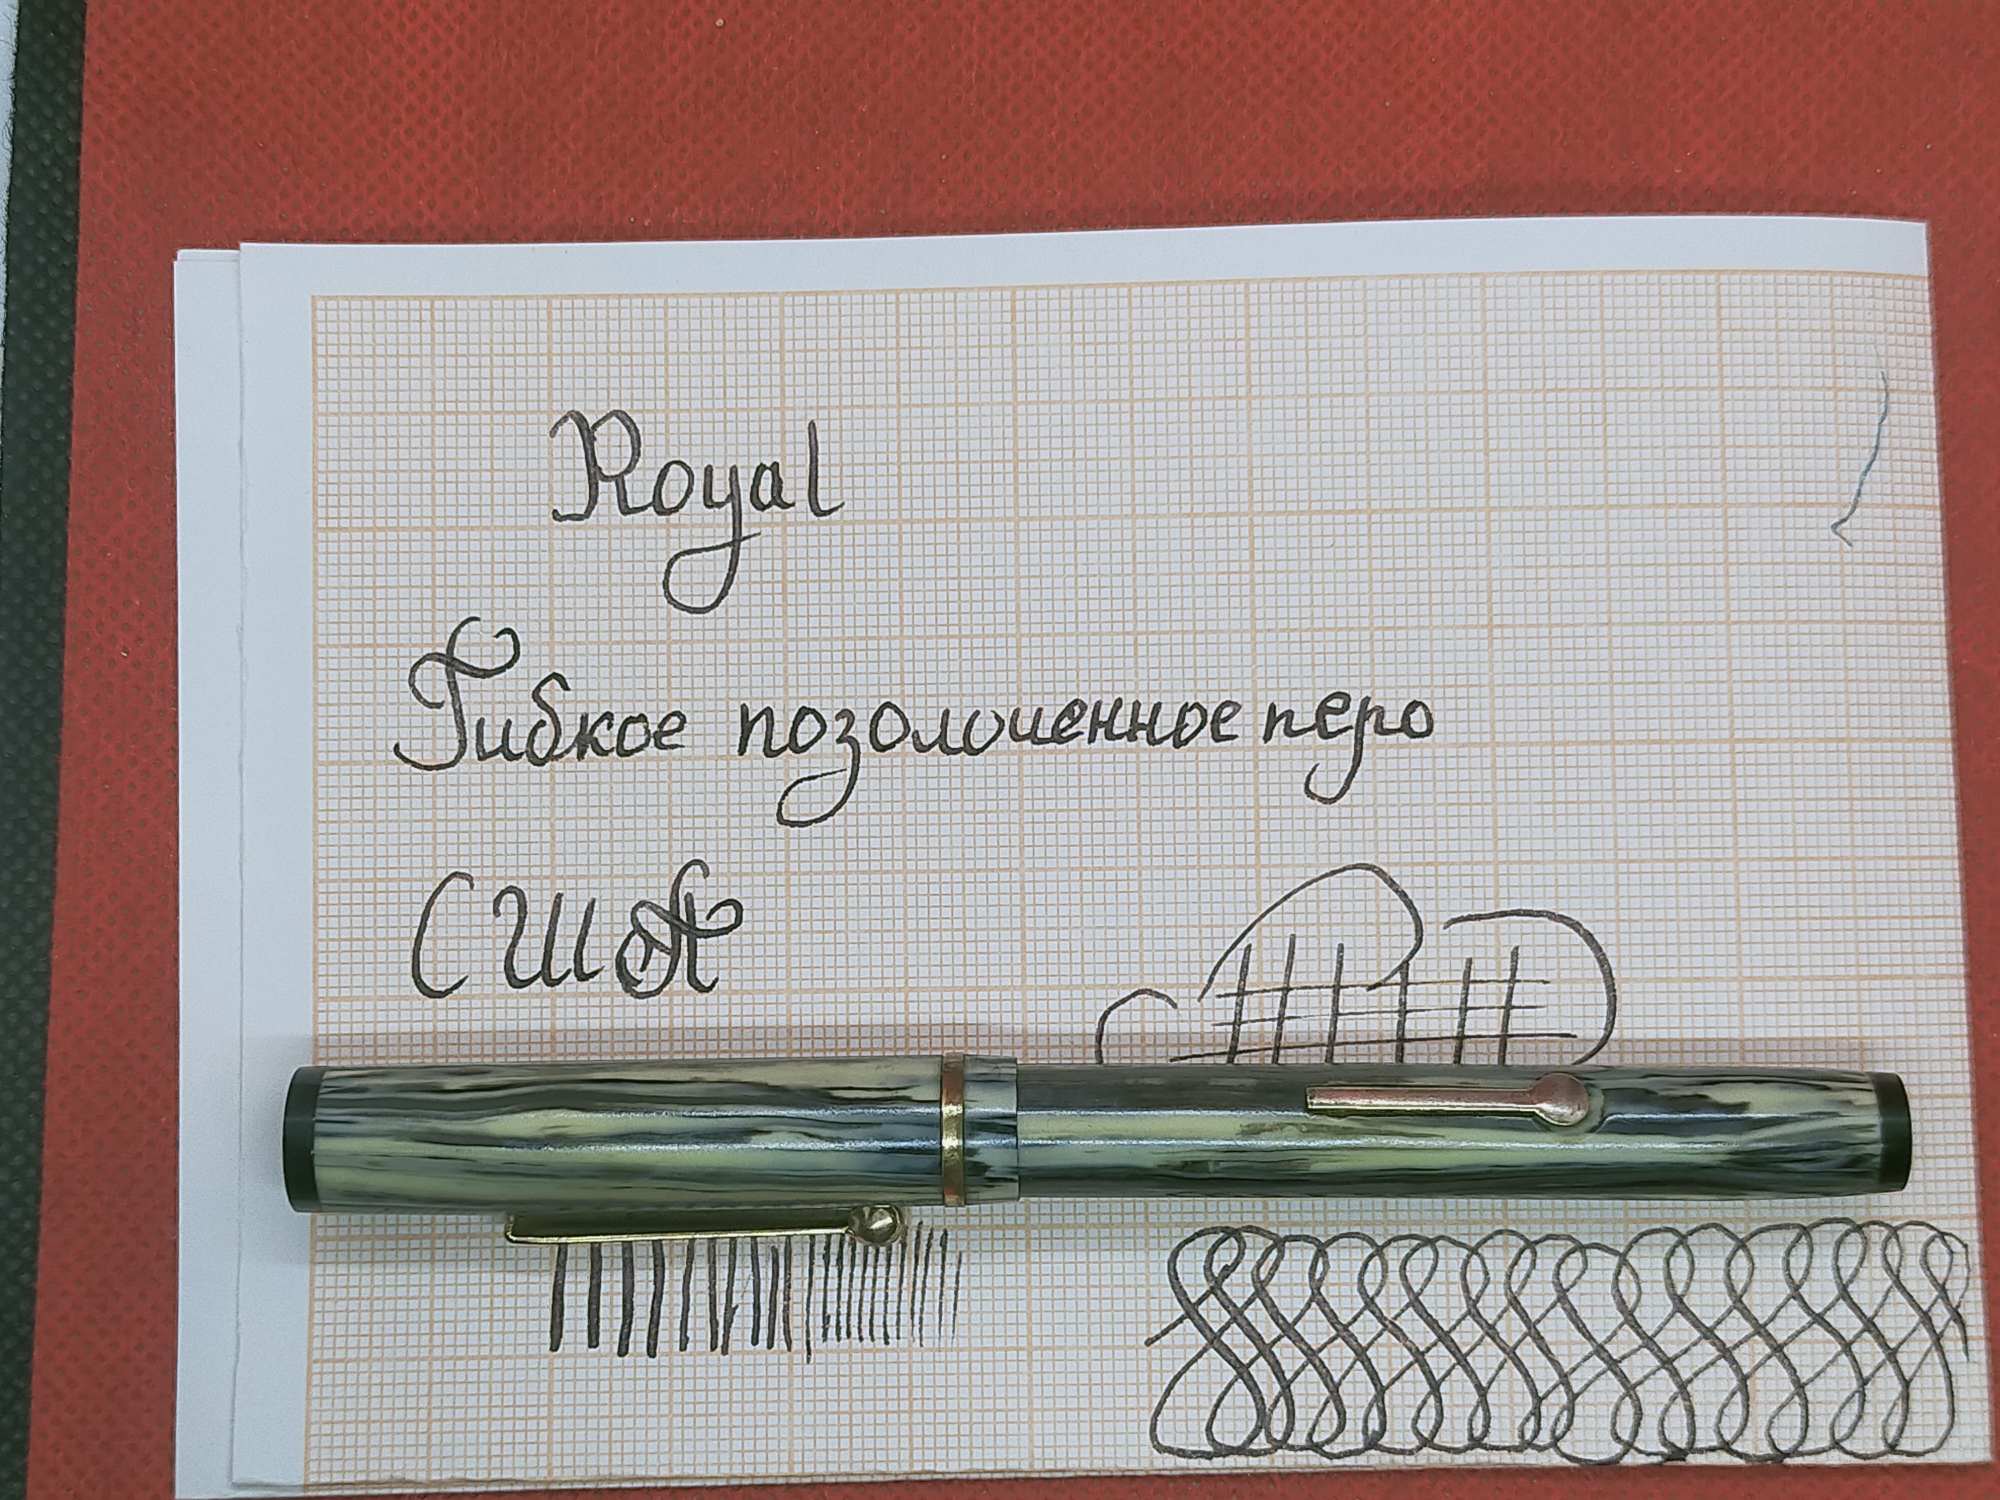 Royal
Гибкое позолоченное перо
США